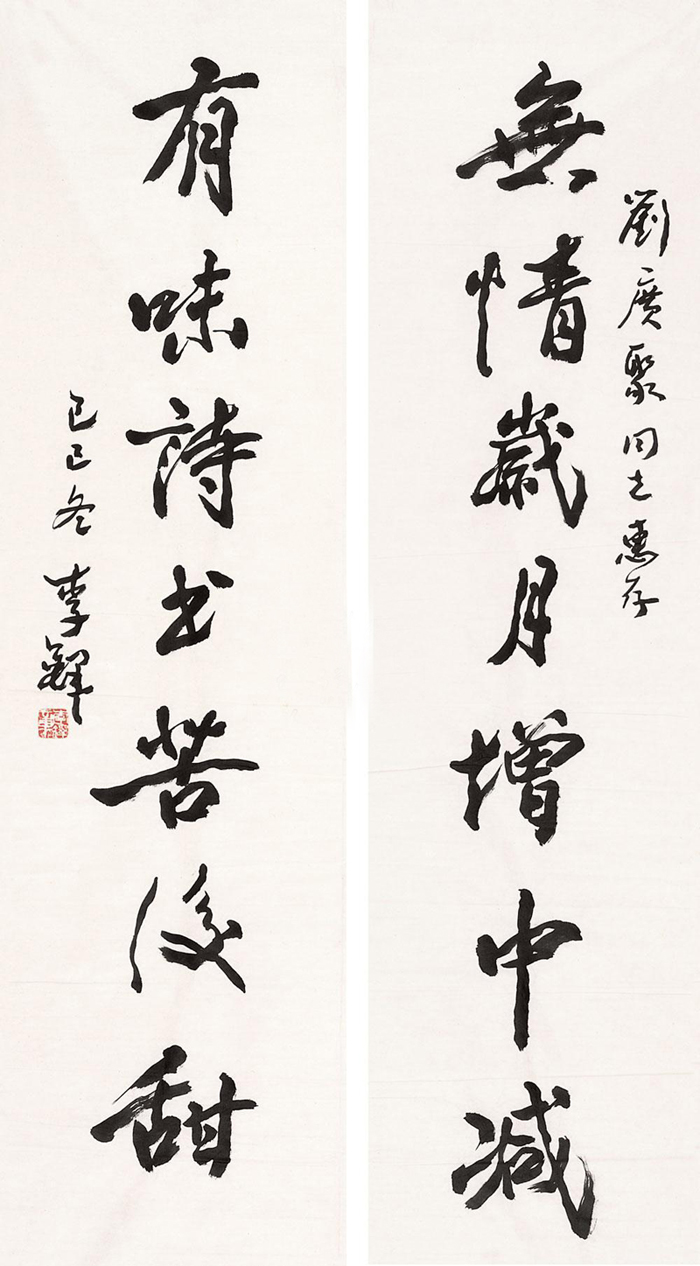 劉廣聚同志惠存
無情歲月增中減
有味詩书苦後甜
己巳冬 李鐸